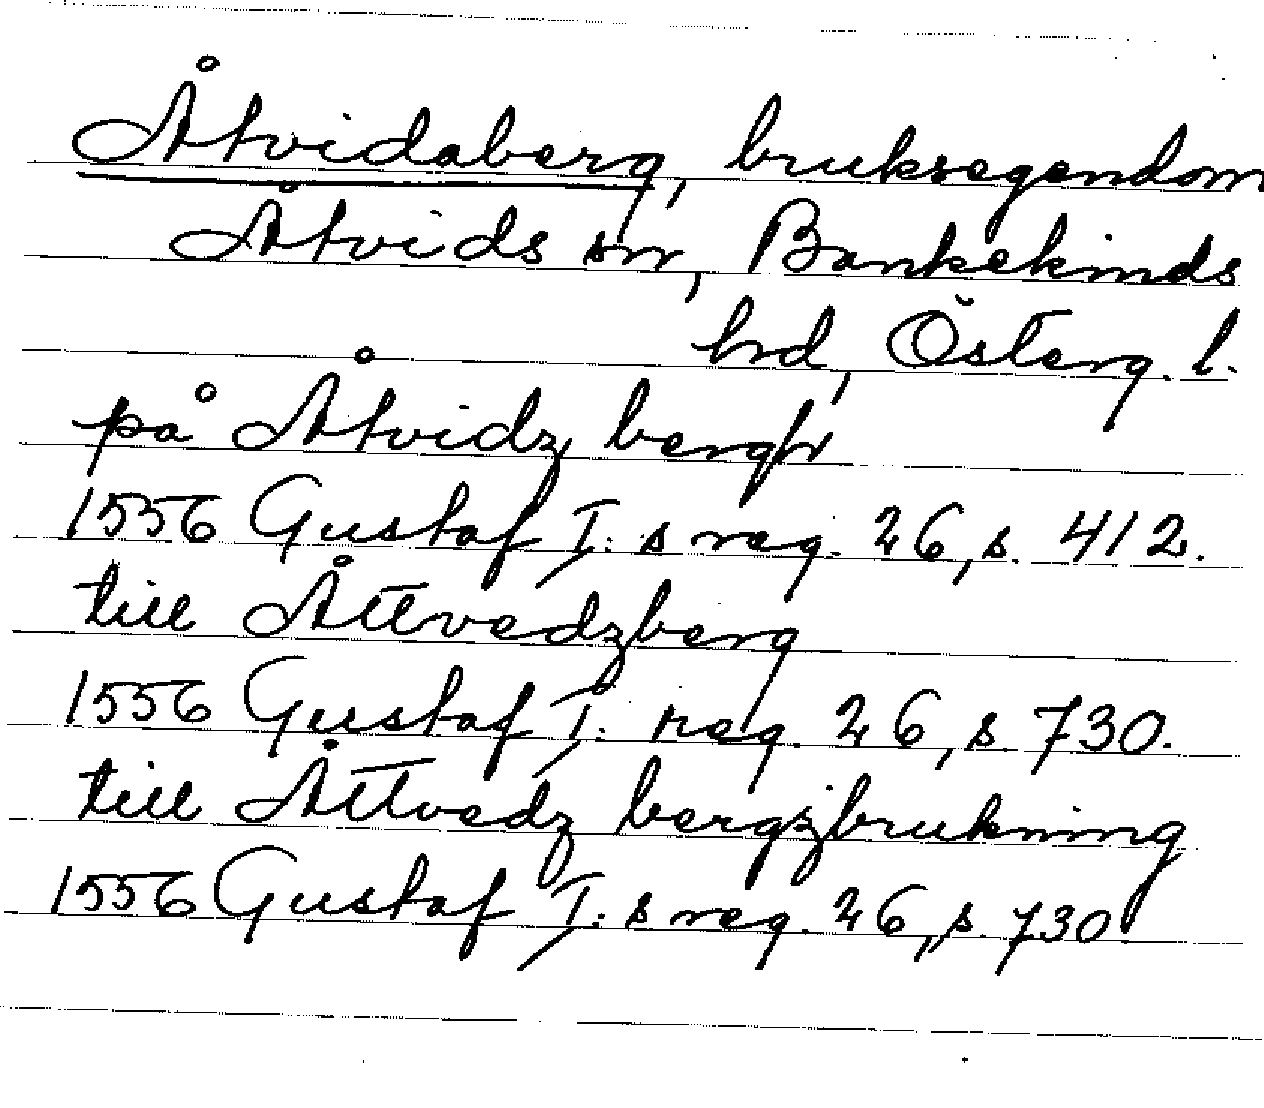 Åtvidaberg, bruksegendom
Åtvids sn, Bankekinds
hd, Österg. l.
på Åtvidz bergh
1556 Gustaf I:s reg. 26, s. 412.
till Åttvedzberg
1556 Gustaf I: reg. 26, s 730.
till Åttvedz bergzbrukning
1556 Gustaf I:s reg. 26, s. 730